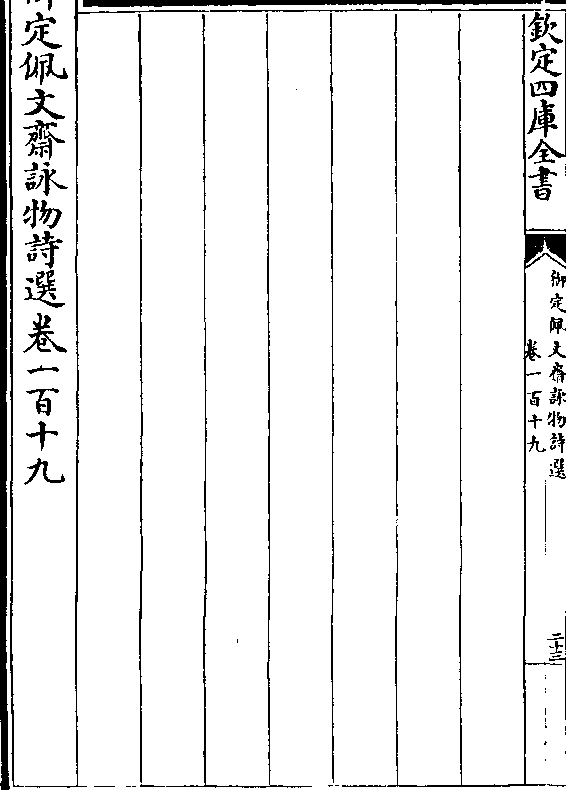 欽定四庫全書
御定佩文齋詠物詩選
卷一百十九
二十三
御定佩文齋詠物詩選卷一百十九